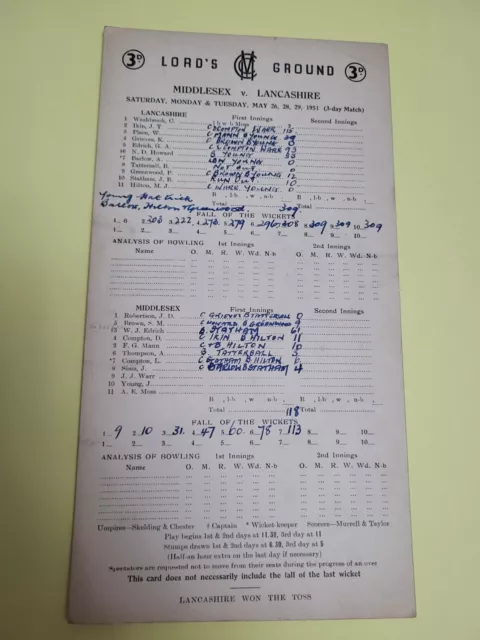 3D LORD'S MCC GROUND 3D
MIDDLESEX v. LANCASHIRE
SATURDAY, MONDAY & TUESDAY, MAY 26, 28, 29, 1951 (3-day Match)
LANCASHIRE First Innings Second Innings
1 Washbrook, C. lbw b Moss
2 Ikin, J. T C COMPTON B WARR
3 Place, W. C MANN B YOUNG
4 Grieves, K. C BROWN B YOUNG 0
5 Edrich, G. A. C COMPTON WARR
†6 N. D. Howard B YOUNG
*7 Barlow, A. LBW YOUNG 0
8 Tattersall, R. NOT OUT 0
9 Greenwood, P. C BROWN B YOUNG 12
10 Statham, J. B. RUN OUT 0
11 Hilton, M. J. C WARR YOUNG 0
B , l-b , w , n-b , B , l-b , w , n-b ,
Young Hat trick
Barlow, Hilton + Greenwood 309
FALL OF THE WICKETS
1— 0 2— 203 3— 222 4— 5— 279 6— 296 7— 308 8— 309 9— 309 10— 309
ANALYSIS OF BOWLING 1st Innings 2nd Innings
Name O. M. R. W. Wd. N-b O. M. R. W. Wd. N-b
MIDDLESEX First Innings Second Innings
1 Robertson, J. D. C GRIEVES B TATTERSALL 0
Brown, S. M. C HOWARD B GREENWOOD 9
W. J. Edrich B STATHAM 61
4 Compton, D. C IKIN B HILTON 11
F. G. Mann C + B HILTON 10
6 Thompson, A. B TATTERSALL 3
*7 Compton, L. C STATHAM B HILTON 0
8 Sims, J. C BARLOW B STATHAM 4
9 J. J. Warr
10 Young, J.
11 A. E. Moss
B , l-b , w , n-b , B , l-b , w , n-b ,
Total 118 Total
FALL OF THE WICKETS
1— 9 2— 10 3— 31 4— 47 5— 60 6— 78 7— 113 8— 9— 10—
1— 2— 3— 4— 5— 6— 7— 8— 9— 10—
ANALYSIS OF BOWLING 1st Innings 2nd Innings
Name O. M. R. W. Wd. N-b O. M. R. W. Wd. N-b
Umpires—Skelding & Chester † Captain * Wicket-keeper Scorers—Murrell & Taylor
Play begins 1st & 2nd days at 11.30, 3rd day at 11
Stumps drawn 1st & 2nd days at 6.30, 3rd day at 5
(Half-an hour extra on the last day if necessary)
Spectators are requested not to move from their seats during the progress of an over
This card does not necessarily include the fall of the last wicket
LANCASHIRE WON THE TOSS